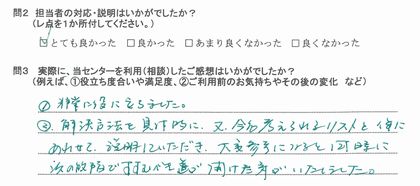 問2 担当者の対応・説明はいかがでしたか?
(レ点を1か所付してください。)
☑とても良かった □良かった □あまり良くなかった □良くなかった
問3 実際に、当センターを利用(相談)したご感想はいかがでしたか?
(例えば、①役立ち度合いや満足度、②ご利用前のお気持ちやその後の変化 など)
① 非常に役に立ちました。
②. 解決方法を具体的に、又、今後考えられるリストと使に
あわせて、説明していただき、大変参考になると同時に
次の段階ですすむべき道が開けた考がいたしました。